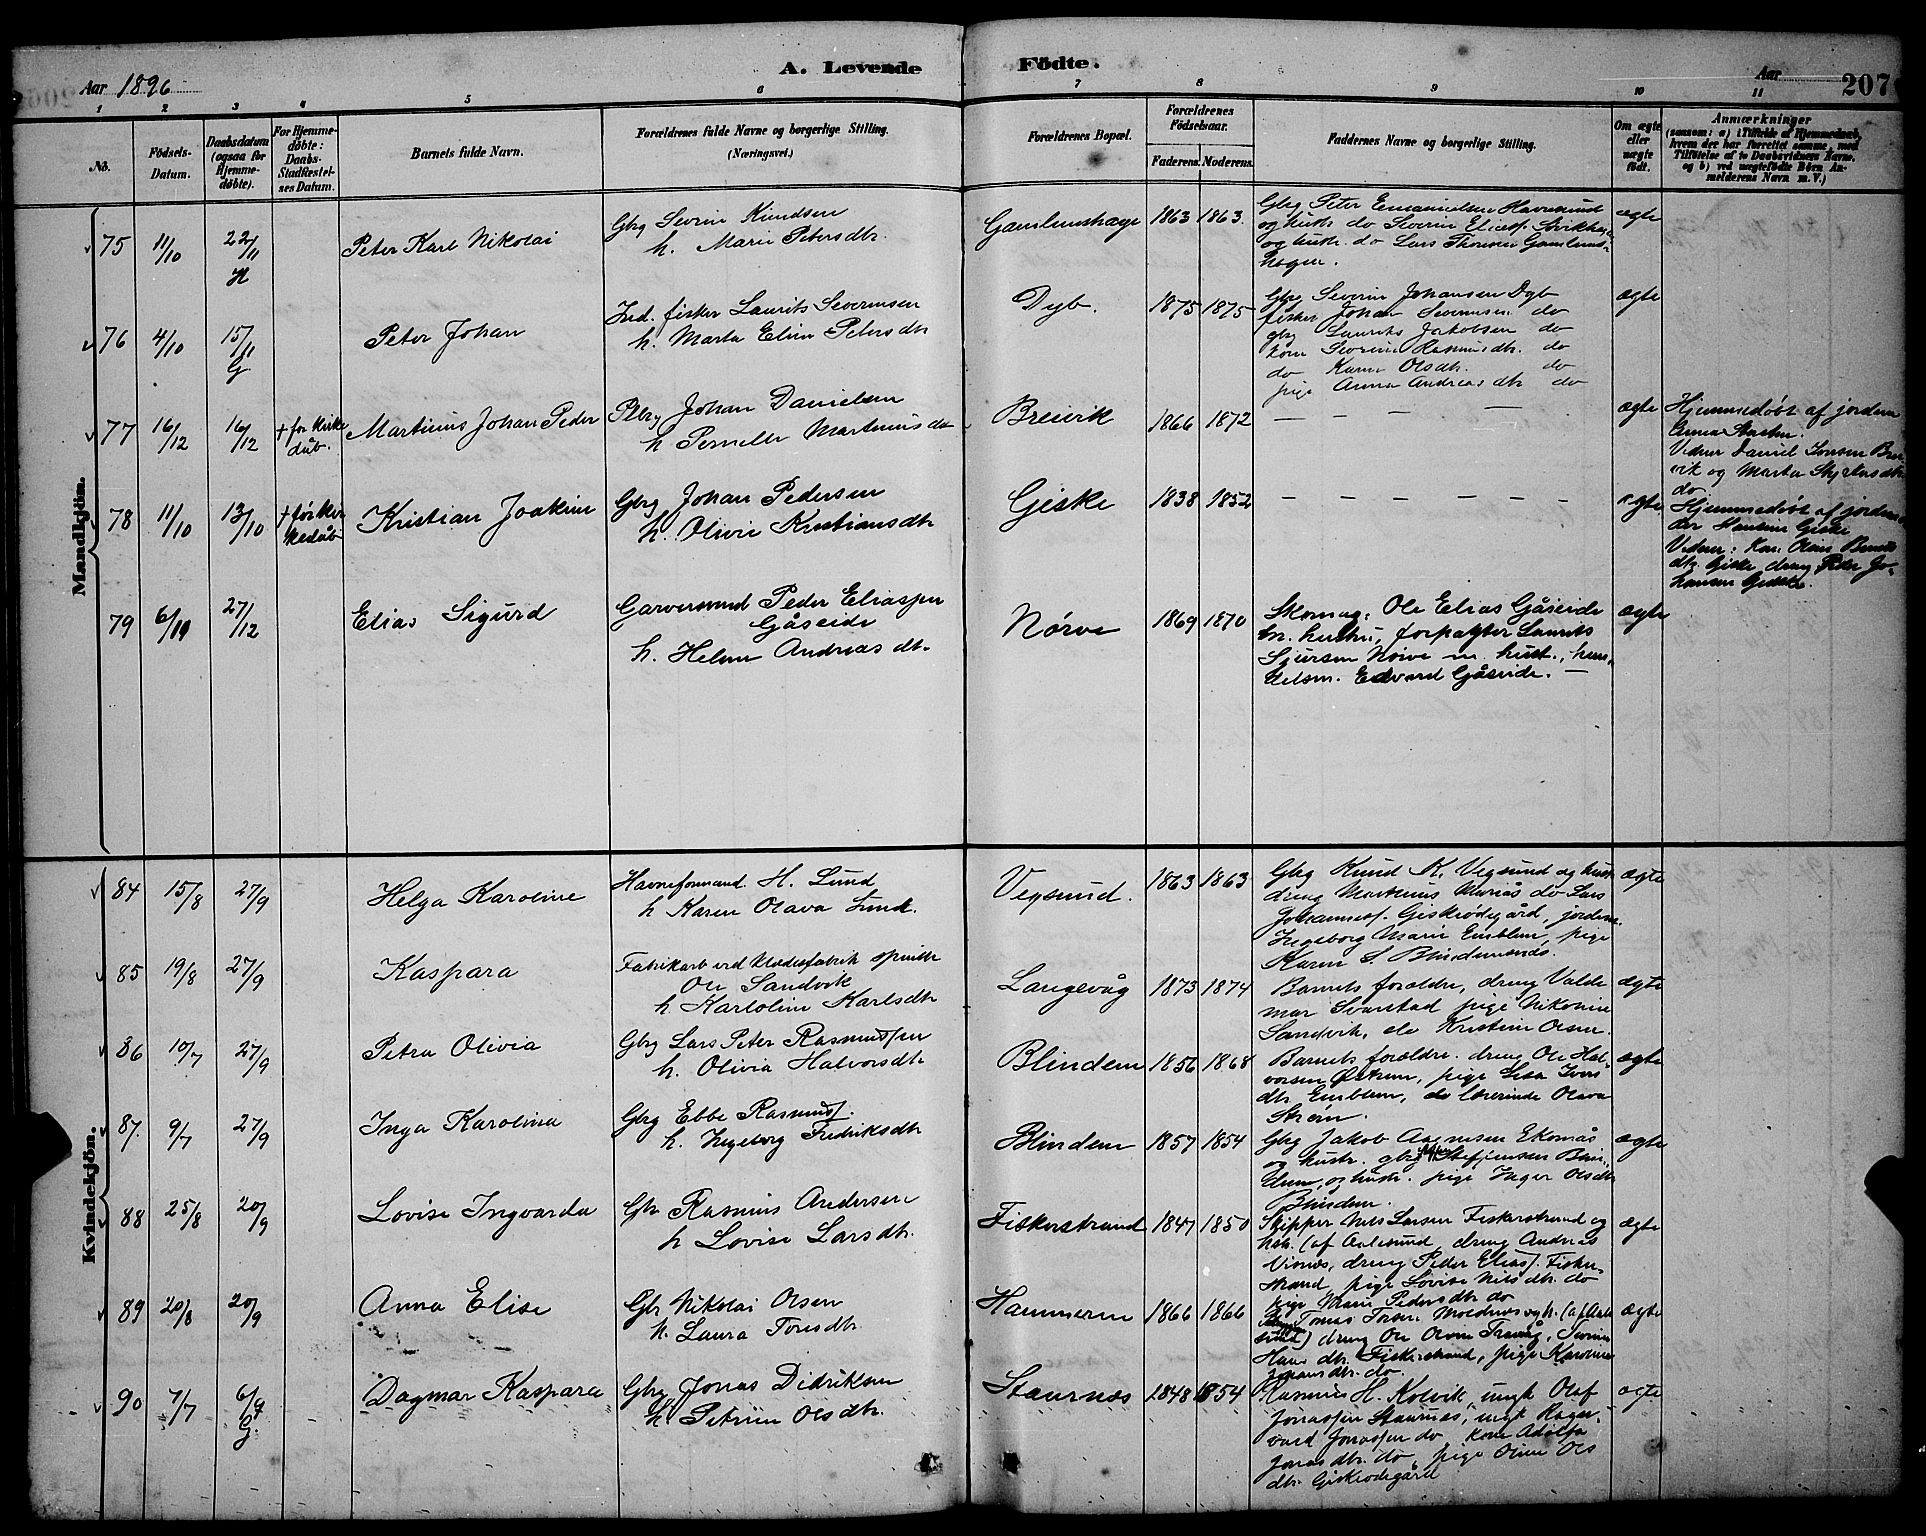 Aar 1896
A. Levende
Födte.
Aar
207
1 2 3 4 5 6 7 8 9 10 11
No.
Födsels-
Datum.
Daabsdatum
(ogsaa for
Hjemme-
døbte).
For Hjemme-
døbte:
Daabs-
Stadfæstel-
ses Datum.
Barnets fulde Navn.
Forældrenes fulde Navne og borgerlige Stilling.
(Næringsvei.)
Forældrenes Bopæl.
Forældrenes
Födselsaar.
Faderens. Moderens.
Faddernes Navne og borgerlige Stilling.
Om ægte
eller
uægte
født.
Anmærkninger
(saasom: a) i Tilfælde af Hjemmedaab,
hvem der har forrettet samme, med
Tilføielse af to Daabsvidners Navne,
og b) ved uægtefødte Børn An-
melderens Navn m. V.)
Mandkjön.
75 11/10 22/11 H Peter Karl Nikolai
Gbg Severin Knudsen
h. Marie Petersdtr.
Gamlemshaug 1863 1863
Gbg Peter Emanielsen Havnsund
og hustr. do Severin
og hustr. do Lars Thoresen Gamlems-
hagen.
ægte
76 4/10 15/11 G Peter Johan
Ind. fisker Laurits Severinsen
h. Marta Elise Petersdtr
Dyb. 1875 1875
Gbg Severin Johansen Dyb
fisker Johan Severinsen do
gbg Laurits Jakobsen do
kone Severine Rasmusdtr. do
do Karen Olsdtr. do
pige Anna Andreasdtr do
ægte
77 16/12 16/12 + for kirke
dåb.
Martinus Johan Peder
Plbg Johan Danielsen
h Pernelle Martinusdtr
Breivik 1866 1872
— — — —
ægte
Hjemmedøbt af jordem
Vidner Daniel Jonsen Brei-
vik og Marta
do
78 11/10 13/10 + før kir-
kedåb
Kristian Joakim
Gbg Johan Pedersen
h. Olivie Kristiansdtr
Giske 1838 1852
— — — — — —
ægte
Hjemmedøbt af jordem
Hansine Giske
Vidner: Kone Oline
dtr Giske, dreng Peder Jo-
hansen Giske.
79 6/11 27/12 Elias Sigurd
Garversvend Peder Eliassen
Gåseide
h. Helene Andreasdtr.
Nørve 1869 1870
Skomag. Ole Elias Gåseide
m. hustru, forpagter Laurits
Sjursen Nørve m. hust., han-
delsm. Edvard Gåseide. —
ægte
Kvindekjön.
84 15/8 27/9 Helga Karoline
Havneformand H. Lund
h Karen Olava Lund.
Vegsund. 1863 1863
Gbg Knud K. Vegsund og hust
dreng Martinus do Lars
Johannesf. Giskeødegård, jordem.
Ingeborg Marie Emblem, pige
Karen S Blindemsnes.
ægte
85 19/8 27/9 Kaspara
Fabrikarb ved klædesfabrik spinder
Ole Sandvik
h Karloline Karlsdtr
Langevåg 1873 1874
Barnets forældre, dreng Valde
mar Svarstad pige Nikoline
Sandvik, do Kristine Olsen.
ægte
86 10/7 27/9 Petra Olivia
Gbg Lars Peter Rasmussen
h. Olivia Halvorsdtr.
Blindem 1856 1868
Barnets forældre. dreng Ole Hal
vorsen Østrem, pige Elsa Ivers
dtr. Emblem, do lærerinde Olava
Strøm.
ægte
87. 9/7 27/9 Inga Karolina
Gbg Ebbe Rasmusf.
h. Ingeborg Fredriksdtr
Blindem 1857 1854
Gbg Jakob Ekornås
og hustr. gbg Steffensen Blin-
dem, og hustr. pige Inger Olsdtr
Blindem.
ægte
88 25/8 20/9 Lovise Ingvarda
Gbr Rasmus Andersen
h Lovise Larsdtr.
Fiskerstrand 1847 1850
Skipper Nils Larsen Fiskerstrand og
hstr. (af Aalesund, dreng Andreas
Visnes, dreng Peder Eliasf. Fisker-
strand, pige Lovise Nilsdtr do
pige Marie Pedersdtr do
ægte
89 20/8 20/9 Anna Elise
Gbr Nikolai Olsen
h. Laura Toresdtr.
Hammeren 1866 1866
Tomas Moldnes og h. (af Aale
sund) dreng Ole Olsen
Hans dtr. Fiskerstrand, pige Karoline
do
ægte
90 7/7 6/9 G. Dagmar Kaspara
Gbg Jonas Didriksen
h Petrine Olsdtr.
Staurnes 1848 1854
Rasmus H. Kolvik, ungk Olaf
Jonassen Staurnes, ungk
Jonassen do kone Adolfa
Jonasdtr. do, pige Oline Ols
dtr. Giskeødegård
ægte